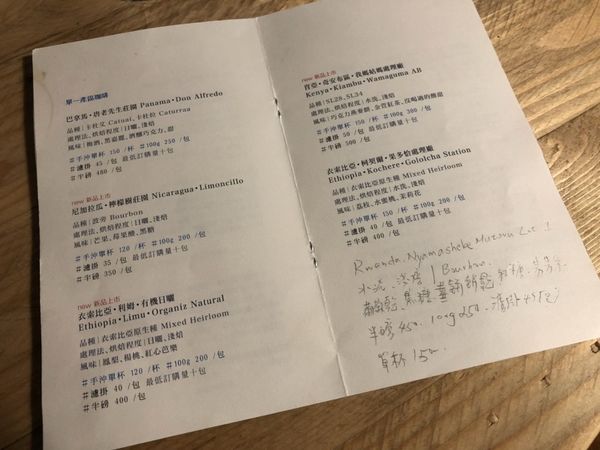 單一產區咖啡
巴拿馬・唐老先生莊園 Panama・Don Alfredo
品種｜卡杜艾 Catuai, 卡杜拉 Caturraa
處理法、烘焙程度｜日曬、淺焙
風味｜梅酒、黑嘉麗、酒釀巧克力、甜
#手沖單杯 150 /杯 #100g 250 /包
#濾掛 45 /包 最低訂購量十包
#半磅 480 /包
new 新品上市
尼加拉瓜・檸檬樹莊園 Nicaragua・Limoncillo
品種｜波旁 Bourbon
處理法、烘焙程度｜日曬、淺焙
風味｜芒果、莓果酸、黑糖
#手沖單杯 120 /杯 #100g 200 /包
#濾掛 35 /包 最低訂購量十包
#半磅 350 /包
new 新品上市
衣索比亞・利姆・有機日曬
Ethiopia・Limu・Organiz Natural
品種｜衣索比亞原生種 Mixed Heirloom
處理法、烘焙程度｜日曬、淺焙
風味｜鳳梨、楊桃、紅心芭樂
#手沖單杯 120 /杯 #100g 200 /包
#濾掛 40 /包 最低訂購量十包
#半磅 400 /包
new 新品上市
肯亞・奇安布區・我媽姑媽處理廠
Kenya・Kiambu・Wamaguma AB
品種｜SL28、SL34
處理法、烘焙程度｜水洗、淺焙
風味｜巧克力燕麥餅、金萱紅茶、沒喝過的酸甜
#手沖單杯 150 /杯 #100g 300 /包
#濾掛 50 /包 最低訂購量十包
#半磅 500 /包
衣索比亞・柯契爾・果多恰處理廠
Ethiopia・Kochere・Gololcha Station
品種｜衣索比亞原生種 Mixed Heirloom
處理法、烘焙程度｜水洗、淺焙
風味｜荔枝、水蜜桃、茉莉花
#手沖單杯 150 /杯 #100g 200 /包
#濾掛 40 /包 最低訂購量十包
#半磅 400 /包
Rwanda Nyamasheke Mutovu Lot 1
水洗 淺焙 | Bourbon
焦糖
半磅 450. 100g 250. 濾掛 45
單杯 150